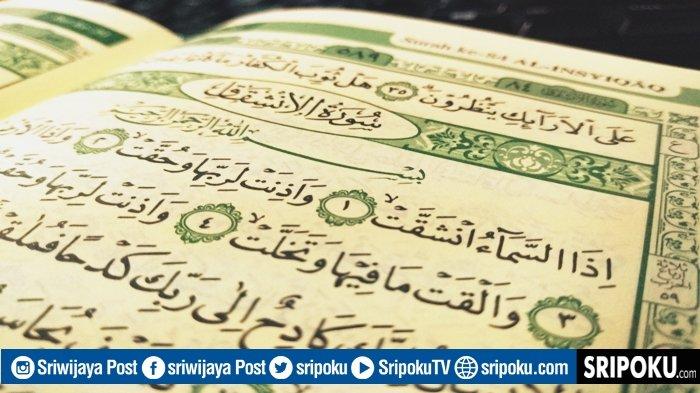 Surah ke-84 AL-INSYIQAQ
٥٨٩
٨٤
عَلَى الْاَرَاۤىِٕكِ يَنْظُرُوْنَۗ ٣٥ هَلْ ثُوِّبَ الْكُفَّارُ
سُوْرَةُ الْاِنْشِقَاقِ
بِسْمِ اللّٰهِ الرَّحْمٰنِ الرَّحِيْمِ
اِذَا السَّمَاۤءُ انْشَقَّتْۙ ١ وَاَذِنَتْ لِرَبِّهَا وَحُقَّتْۙ ٢
٣ وَاَلْقَتْ مَا فِيْهَا وَتَخَلَّتْۙ ٤ وَاَذِنَتْ لِرَبِّهَا
كَادِحٌ اِلٰى رَبِّكَ كَدْحًا
٥٩
Sriwijaya Post sriwijaya Post sripoku SripokuTV sripoku.com SRIPOKU.com